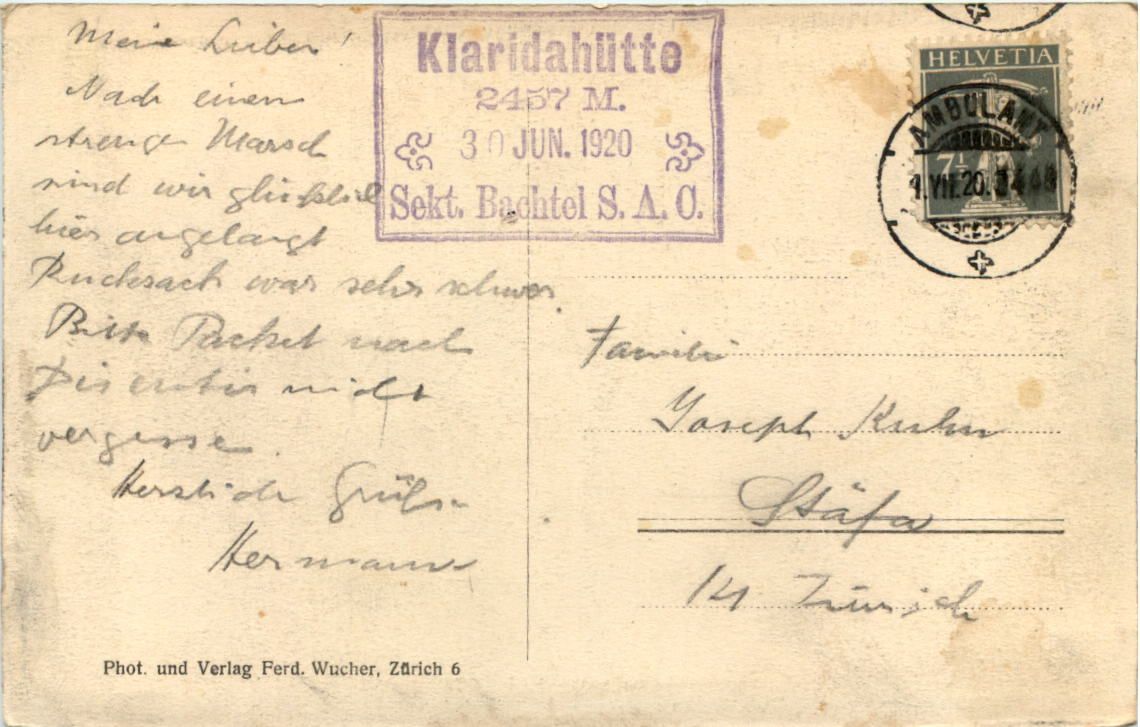 Meine Lieben!
Nach einem
strengen Marsch
sind wir glücklich
hier angelangt
Rucksack war sehr schwer
Bitte Packet nach
Disentis nicht
vergesse
Herzliche Grüße
Hermann
Phot. und Verlag Ferd. Wucher, Zürich 6
Klaridahütte
2457 M.
30 JUN. 1920
Sekt. Bachtel S. A. C.
HELVETIA
7½
AMBULANT
1.VII.20.
Familie
Joseph Kuhn
Stäfa
Kt Zürich